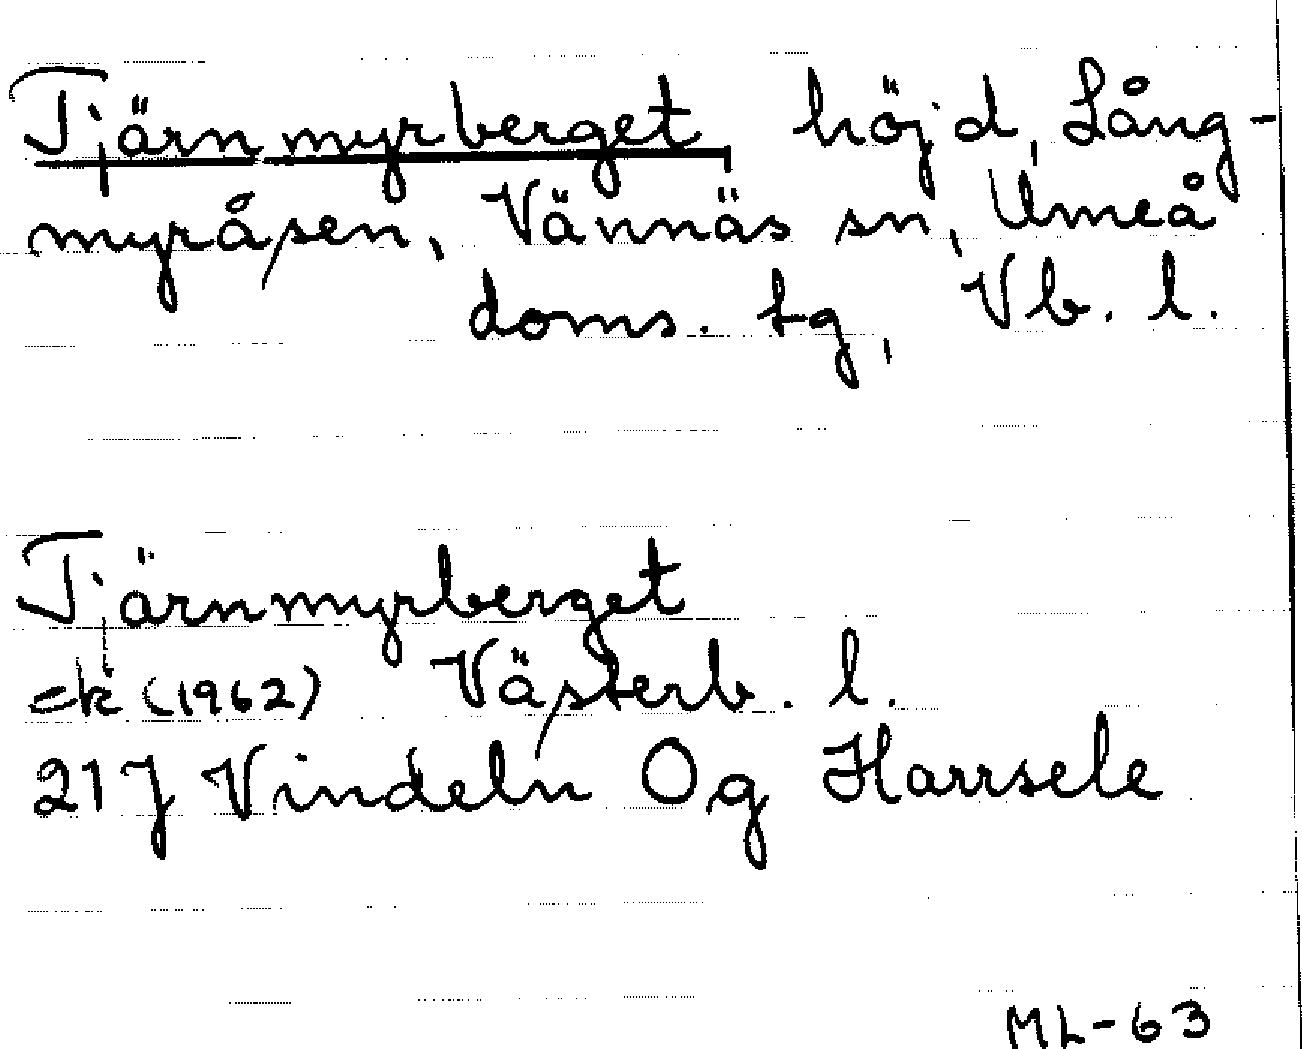 Tjärnmyrberget, höjd, Lång-
myråsen, Vännäs sn, Umeå
doms. tg, Vb. l.
Tjärnmyrberget
ek (1962) Västerb. l.
21J Vindeln Og Harrsele
ML-63